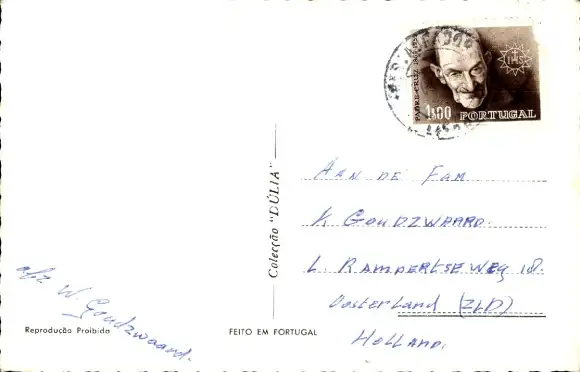 PADRE CRUZ
1$00 PORTUGAL
AAN DE FAM
K GOUDZWAARD.
L RAMPERTSEWEG 18.
Oosterland (ZLD)
HOLLAND.
Colecção "DÚLIA"
afz W. Goudzwaard.
Reprodução Proibida
FEITO EM PORTUGAL